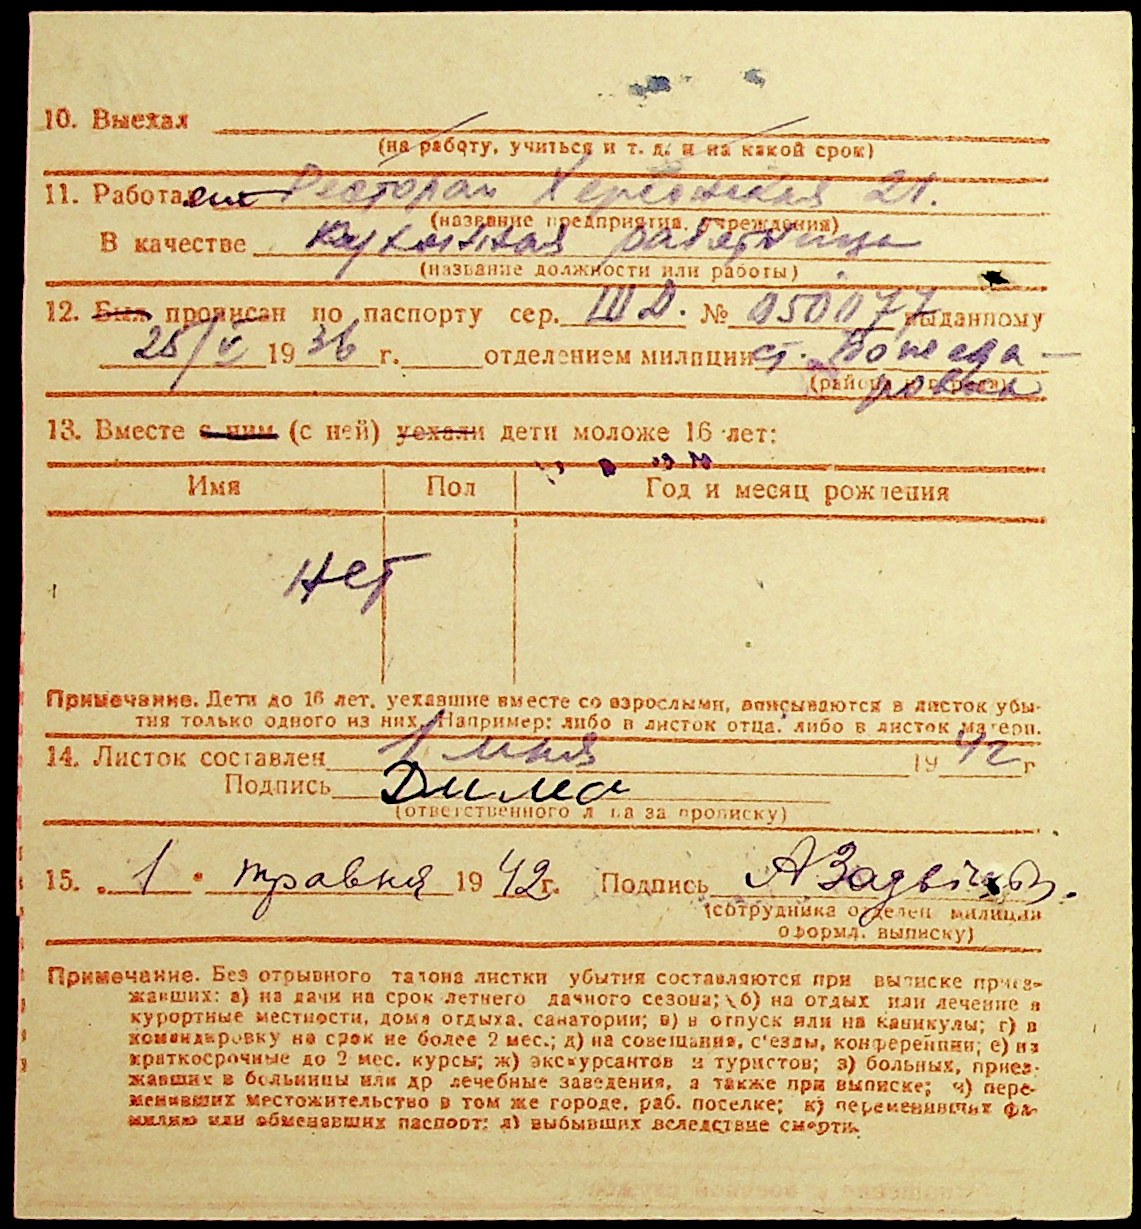 10. Выехал
(на работу, учиться и т. д. и на какой срок)
11. Работает Ресторан Херсонская 21.
(название предприятия, учреждения)
В качестве кухонная работница
(название должности или работы)
12. Был прописан по паспорту сер. ШД. № 050077 выданному
25/V 1936 г. отделением милиции ст. 
(района и города)
13. Вместе с ним (с ней) уехали дети моложе 16 лет:
Имя Пол Год и месяц рождения
Нет
Примечание. Дети до 16 лет, уехавшие вместе со взрослыми, вписываются в листок убы-
тия только одного из них. Например: либо в листок отца, либо в листок матери.
14. Листок составлен 1 мая 1942 г
Подпись Дима
(ответственного лица за прописку)
15. 1 травня 1942 г. Подпись
(сотрудника отделен милиции
оформл. выписку)
Примечание. Без отрывного талона листки убытия составляются при выписке приез-
жавших: а) на дачи на срок летнего дачного сезона; б) на отдых или лечение в
курортные местности, дома отдыха, санатории; в) в отпуск или на каникулы; г) в
командировку на срок не более 2 мес.; д) на совещания, с'езды, конференции; е) на
краткосрочные до 2 мес. курсы; ж) экскурсантов и туристов; з) больных, приез-
жавших в больницы или др лечебные заведения, а также при выписке; и) пере-
менивших местожительство в том же городе, раб. поселке; к) переменивших фа-
милию или обменявших паспорт; л) выбывших вследствие смерти.